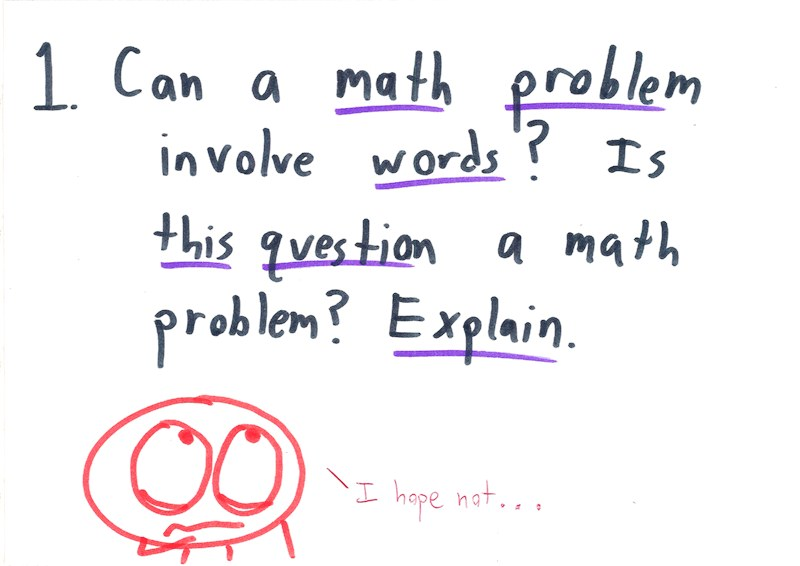 1. Can a math problem
involve words? Is
this question a math
problem? Explain.
I hope not...